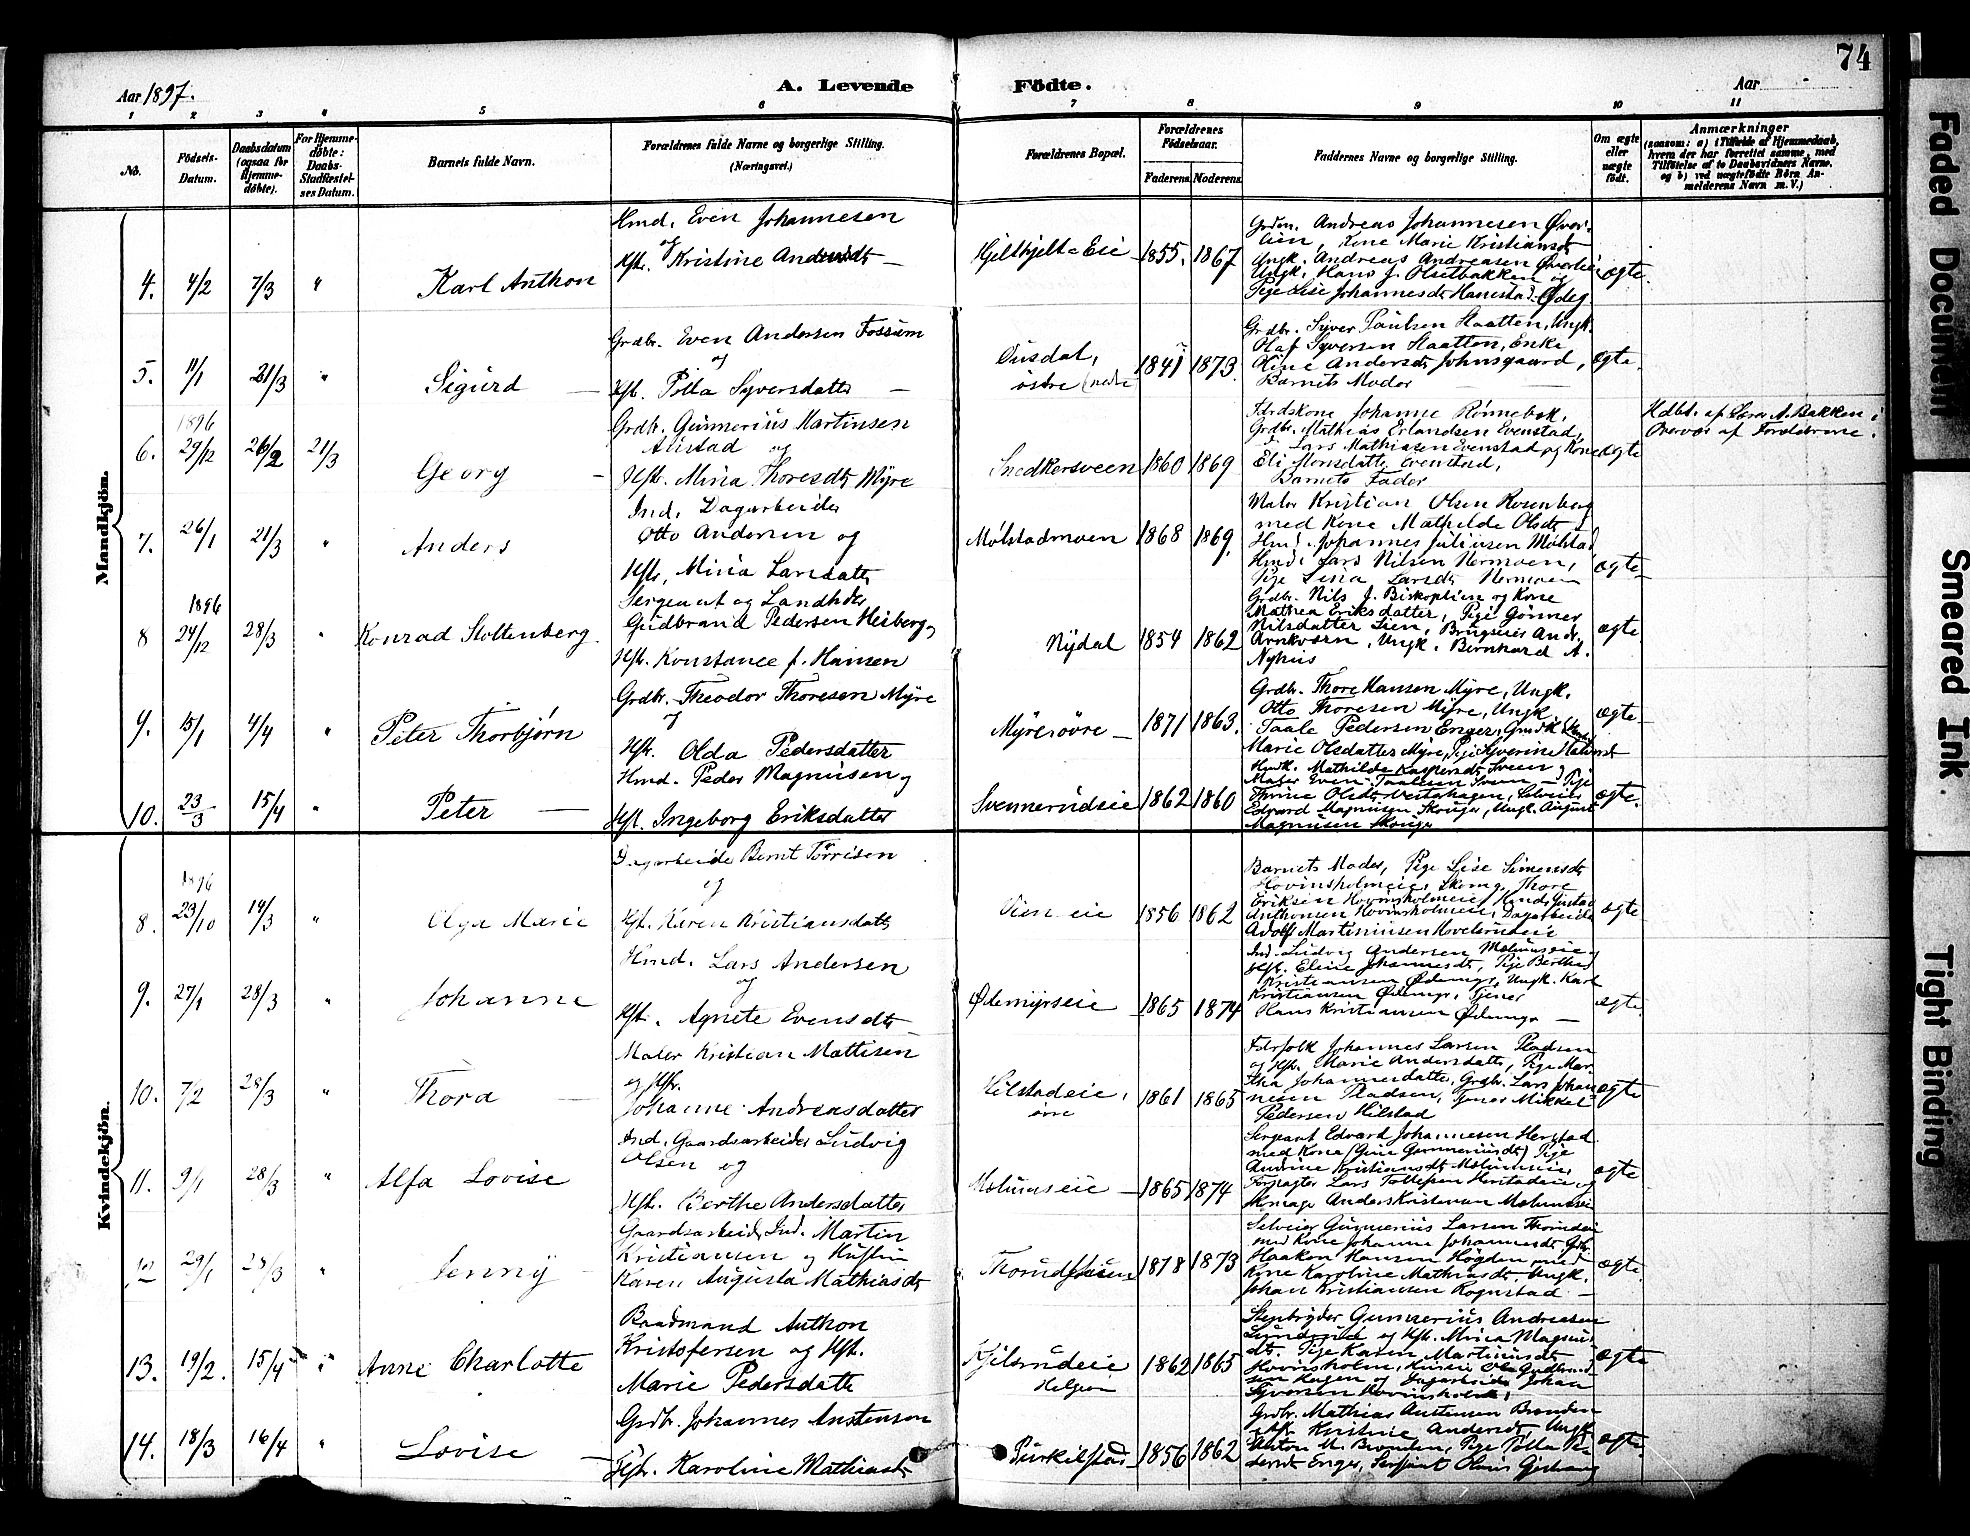 74
Aar 1897.
A. Levende Födte.
Aar
1 2 3 4 5 6 7 8 9 10 11
No.
Födsels-Datum.
Daabsdatum (ogsaa for Hjemmedöbte).
For Hjemmedöbte: Daabs-Stadfæstelses Datum.
Barnets fulde Navn.
Forældrenes fulde Navne og borgerlige Stilling. (Næringsvei.)
Forældrenes Bopæl.
Forældrenes Födselsaar.
Faderens. Moderens.
Faddernes Navne og borgerlige Stilling.
Om ægte eller uægte födt.
Anmærkninger
(saasom: a) i Tilfælde af Hjemmedaab, hvem der har forrettet samme, med Tilföielse af to Daabsvidners Navne, og b) ved uægtefödte Börn Anmelderens Navn m. V.)
Mandkjön.
4. 4/2 7/3 " Karl Anthon
Hmd. Even Johannesen
og
Hstr. Kristine Andersdt
Gjelthjelt = Eie 1855. 1867
Grdm. Andreas Johannesen Øver-
lien, Kone Marie Kristiansdt
Ungk. Andreas Andreasen Øverlie
Ungk. Hans J. Olsetbakken og
Pige Lise Johannesdt Hanestad-Ødeg
ægte.
5. 11/1 21/3 " Sigurd
Grdbr. Even Andersen Fossum
og
Hst. Petla Syversdatter
Ousdal,
østre (nedre 1841 1873
Grdbr. Syver Paulsen Haatten, Ungk.
Olaf Syversen Haatten, Enke
Oline Andersdt Johnsgaard,
Barnets Moder
ægte.
6. 1896 29/12 26/2 21/3 Georg
Grdbr. Gunnerius Martinsen
Alistad og
Hst. Mina Thoresdt Myre
Snedkersveen 1860 1869
Jordskone Johanne Rønnebek,
Grdbr. Mathias Erlandsen Evenstad,
Lars Mathiasen Evenstad og Kone
Eli Monsdatter Evenstad,
Barnets Fader
ægte
Hdbt. af Lars A. Bakken i
Overvær af Forældrene.
7. 26/1 21/3 " Anders
Ind. Dagarbeider
Otto Andersen og
Hstr. Mina Larsdatter
Mølstadmoen 1868 1869.
Maler Kristian Olsen Rosenberg
med Kone Mathilde Olsdt
Hmd. Johannes Juliusen Mølstad,
Hmd. Lars Nilsen Nermoen,
Pige Lina Larsdt Nermoen
ægte
8 1896 24/12 28/3 " Konrad Stoltenberg.
Sergeant og Landhdr
Gudbrand Pedersen Heiberg og
Hst. Konstance f. Hansen
Nydal 1854 1862
Grdbr. Nils J. Biskoplien og Kone
Mathea Eriksdatter, Pige Gønner
Nilsdatter Lien, Brugseier Andr.
Arnkværn, Ungk. Bernhard A.
Nyhus
ægte
9. 15/1 4/4 " Peter Thorbjørn
Grdbr. Theodor Thoresen Myre
og
Hst. Olda Pedersdatter
Myre søvre 1871 1863.
Grdbr. Thore Hansen Myre, Ungk.
Otto Thoresen Myre, Ungk.
Taale Pedersen Enger, Grdk
Marie Olsdatter Myre, Pige
ægte
10. 23/3 15/4 " Peter
Hmd. Peder Magnusen og
Hst. Ingeborg Eriksdatter
Svennerudeie 1862 1860
Hmk. Mathilde Kaspersdt Sveen og
Maler Even Taalesen Sveen, Pige
Thrine Olsdt Vestahagen, Selveier
Edvard Magnusen Skouger, Ungk. August
Magnusen Skouger
ægte.
Kvindekjön.
8. 1896 23/10 14/3 " Olga Marie
Dagarbeide Bernt Torrisen
og
Hst. Karen Kristiansdatt
Vien eie 1856 1862
Barnets Moder, Pige Lise Simensdt
Hovinsholmeie, Skomg. Thore
Eriksen Hovinsholmeie, Hmd. Gustav
Anthonsen Hovinsholmeie, Dagarbeide
Adolf Martiniusen
ægte
9. 27/1 28/3 " Johanne
Hmd. Lars Andersen
og
Hst. Agnete Evensdt
Ødemyrseie 1865 1874
Ind. Ludvig Andersen Molunseie og
Hst. Eline Johannesdt, Pige Berthe
Kristiansen Ødemyr, Ungk. Karl
Kristiansen Ødemyr, Tjener
Hans Kristiansen Ødemyr
ægte.
10. 7/2 28/3 " Thora
Maler Kristian Mattisen
og Hst.
Johanne Andreasdatter
Hilstadeie,
øvre 1861 1865
Føderfolk Johannes Larsen Pladsen
og Hst. Marie Andersdatte, Pige Mar-
tha Johannesdatte, Grdbr. Lars Johan
nesen Pladsen, Tjener Mikkel
Pedersen Hilstad
ægte
11. 9/1 28/3 " Alfa Lovise
Ind. Gaardsarbeider Ludvig
Olsen og
Hst. Berthe Andersdatter
Molunseie 1865 1874
Sergeant Edvard Johannesen Herstad
med Kone Gine Gunneriusdt, Pige
Andrine Kristiansdt Molunseie,
Forpagter Lars Tollefsen Herstadeie og
Skomager Anders Kristiansen Molunseie
ægte
12 29/1 28/3 " Jenny
Gaardsarbeider, Ind. Martin
Kristiansen og Hustru
Karen Augusta Mathiasdt
1878 1873
Selveier Gunnerius Larsen Thorudeie
med Kone Johanne Johannesdt, Grdbr.
Haaken Hansen Høgden med
Kone Karoline Mathiasdt, Ungk.
Johan Kristiansen Rognstad
ægte.
13. 19/2. 15/4 " Anne Charlotte
Baadmand Anthon
Kristofersen og Hst.
Marie Pedersdatte
Kjilsrudeie
Helgøen 1862 1865
Stenbryder Gunnerius Andreasen
Lundrud og Hst. Mina Magnus-
dt. Pige Karen Martinusdt
Hovinsholm, Huseie Ole Gudbrand
sen Hagen og Dagarbeider Johan
Syversen Hovinsholm.
ægte
14. 18/3 16/4 " Lovise
Grdbr. Johannes Anstenson
Hst. Karoline Mathiasdt
Purkilstad 1856 1862
Grdbr. Mathias Austensen Brenden
Hst. Kristine Andersdt, Ungk.
Anton M. Brenden, Pige Petla Pe-
dersdt Enger, Serjeant
ægte.
Faded Document
Smeared Ink.
Tight Binding